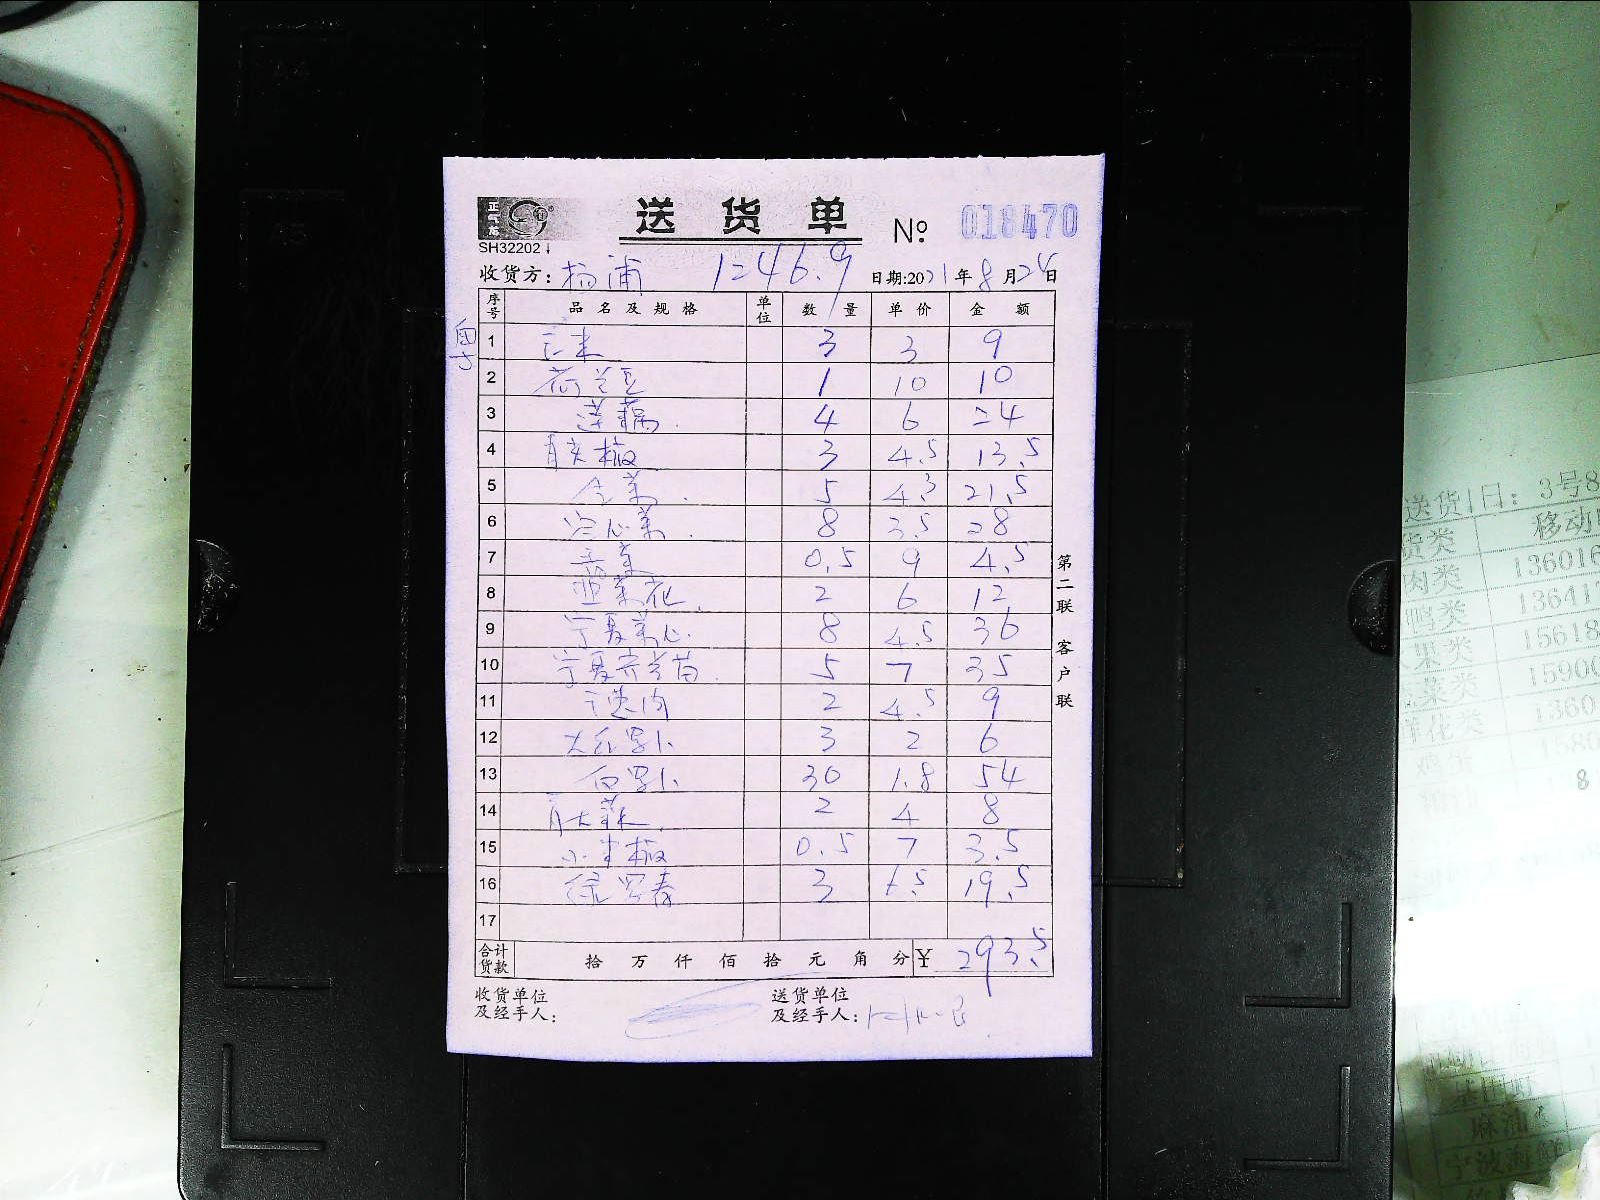 正气
SH32202
送货单 № 018470
收货方: 杨浦 1246.9 日期:2021年8月24日
粤
序号 品名及规格 单位 数量 单价 金额
1 玉米 3 3 9
2 荷兰豆 1 10 10
3 莲藕 4 6 24
4 青尖椒 3 4.5 13.5
5 生菜 5 4.3 21.5
6 空心菜 8 3.5 28
7 香菜 0.5 9 4.5
8 西兰花 2 6 12
9 宁夏菜心 8 4.5 36
10 宁夏芥兰苗 5 7 35
11 2 4.5 9
12 3 2 6
13 白罗卜 30 1.8 54
14 青大蒜 2 4 8
15 小米椒 0.5 7 3.5
16 3 6.5 19.5
17
合计货款 拾 万 仟 佰 拾 元 角 分 ¥ 293.5
收货单位及经手人:
送货单位及经手人:
第二联 客户联
送货日: 3号8
货类 移动
肉类 13601
鸭类 13641
果类 15618
菜类 1590
1360
1580
8
麻油
宁波海鲜